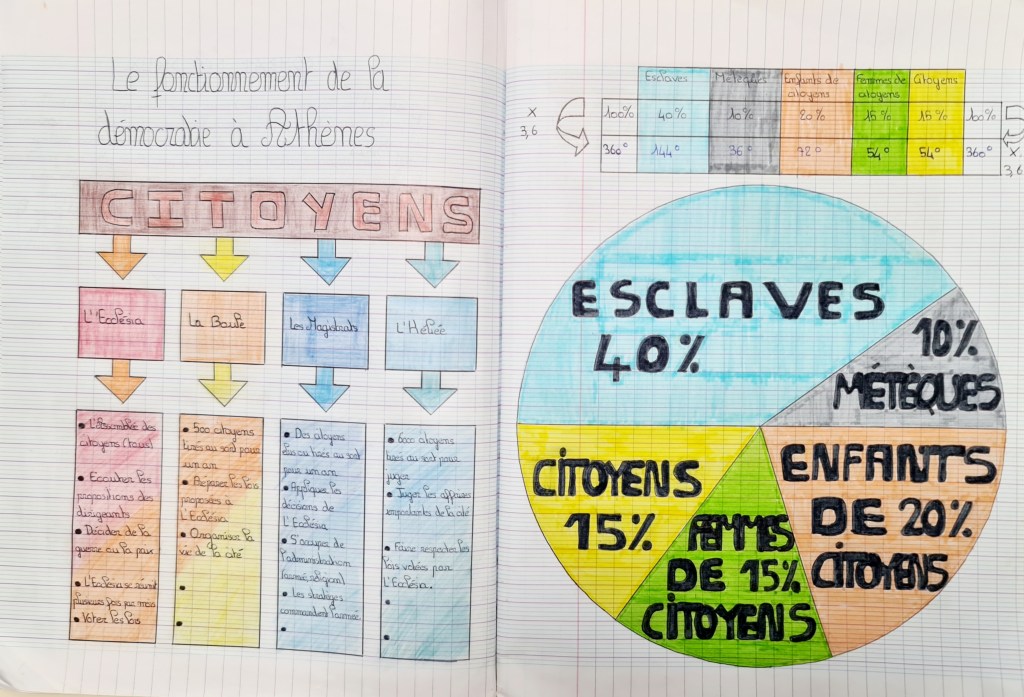 Le fonctionnement de la
démocratie à Athènes
CITOYENS
L'Ecclésia
La Boulé
Les Magistrats
L'Héliée
• L'Assemblée des
citoyens (tous)
• Ecouter les
propositions des
dirigeants
• Décider de la
guerre ou la paix
• L'Ecclésia se réunit
plusieurs fois par mois
• Voter les lois
• 500 citoyens
tirés au sort pour
un an
• Préparer les lois
proposées à
L'Ecclésia
• Organiser la
vie de la cité
• Des citoyens
élus ou tirés au sort
pour un an
• Appliquer les
décisions de
L'Ecclésia
• S'occuper de
l'administration
• Les stratèges
commandent l'armée
• 6000 citoyens
tirés au sort pour
juger
• Juger les affaires
importantes de la cité
• Faire respecter les
lois votées par
L'Ecclésia.
Esclaves Métèques Enfants de citoyens Femmes de citoyens Citoyens
x 3,6
100% 40% 10% 20% 15% 15% 100%
360° 144° 36° 72° 54° 54° 360°
x 3,6
ESCLAVES
40%
10%
MÉTÈQUES
CITOYENS
15%
FEMMES
DE 15%
CITOYENS
ENFANTS
DE 20%
CITOYENS